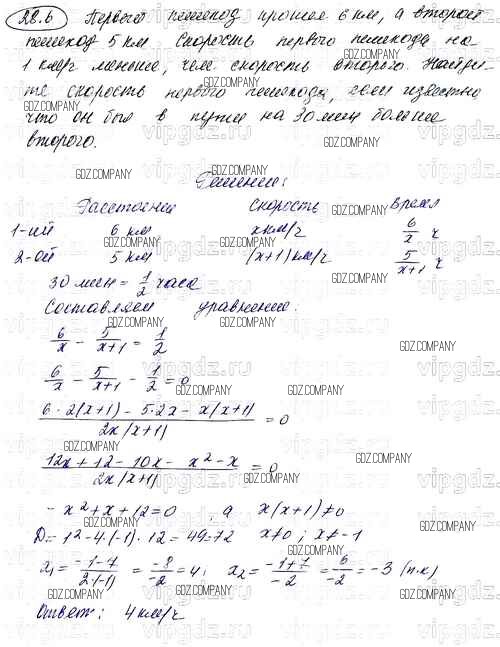 28.6 Первый пешеход прошел 6 км, а второй
пешеход 5 км. Скорость первого пешехода на
1 км/ч меньше, чем скорость второго. Найди-
те скорость первого пешехода, если известно
что он был в пути на 30 мин больше
второго.
Решение:
Расстояние Скорость Время
1-ый 6 км x км/ч 6/x ч
2-ой 5 км (x+1) км/ч 5/(x+1) ч
30 мин = 1/2 часа
Составляем уравнение:
6/x - 5/(x+1) = 1/2
6/x - 5/(x+1) - 1/2 = 0
(6·2(x+1) - 5·2x - x(x+1))/(2x(x+1)) = 0
(12x + 12 - 10x - x² - x)/(2x(x+1)) = 0
- x² + x + 12 = 0, а x(x+1) ≠ 0
D = 1² - 4·(-1)·12 = 49 = 7² x ≠ 0; x ≠ -1
x₁ = (-1-7)/(2·(-1)) = -8/-2 = 4; x₂ = (-1+7)/-2 = 6/-2 = -3 (п.к)
Ответ: 4 км/ч
GDZ.COMPANY
vipgdz.ru